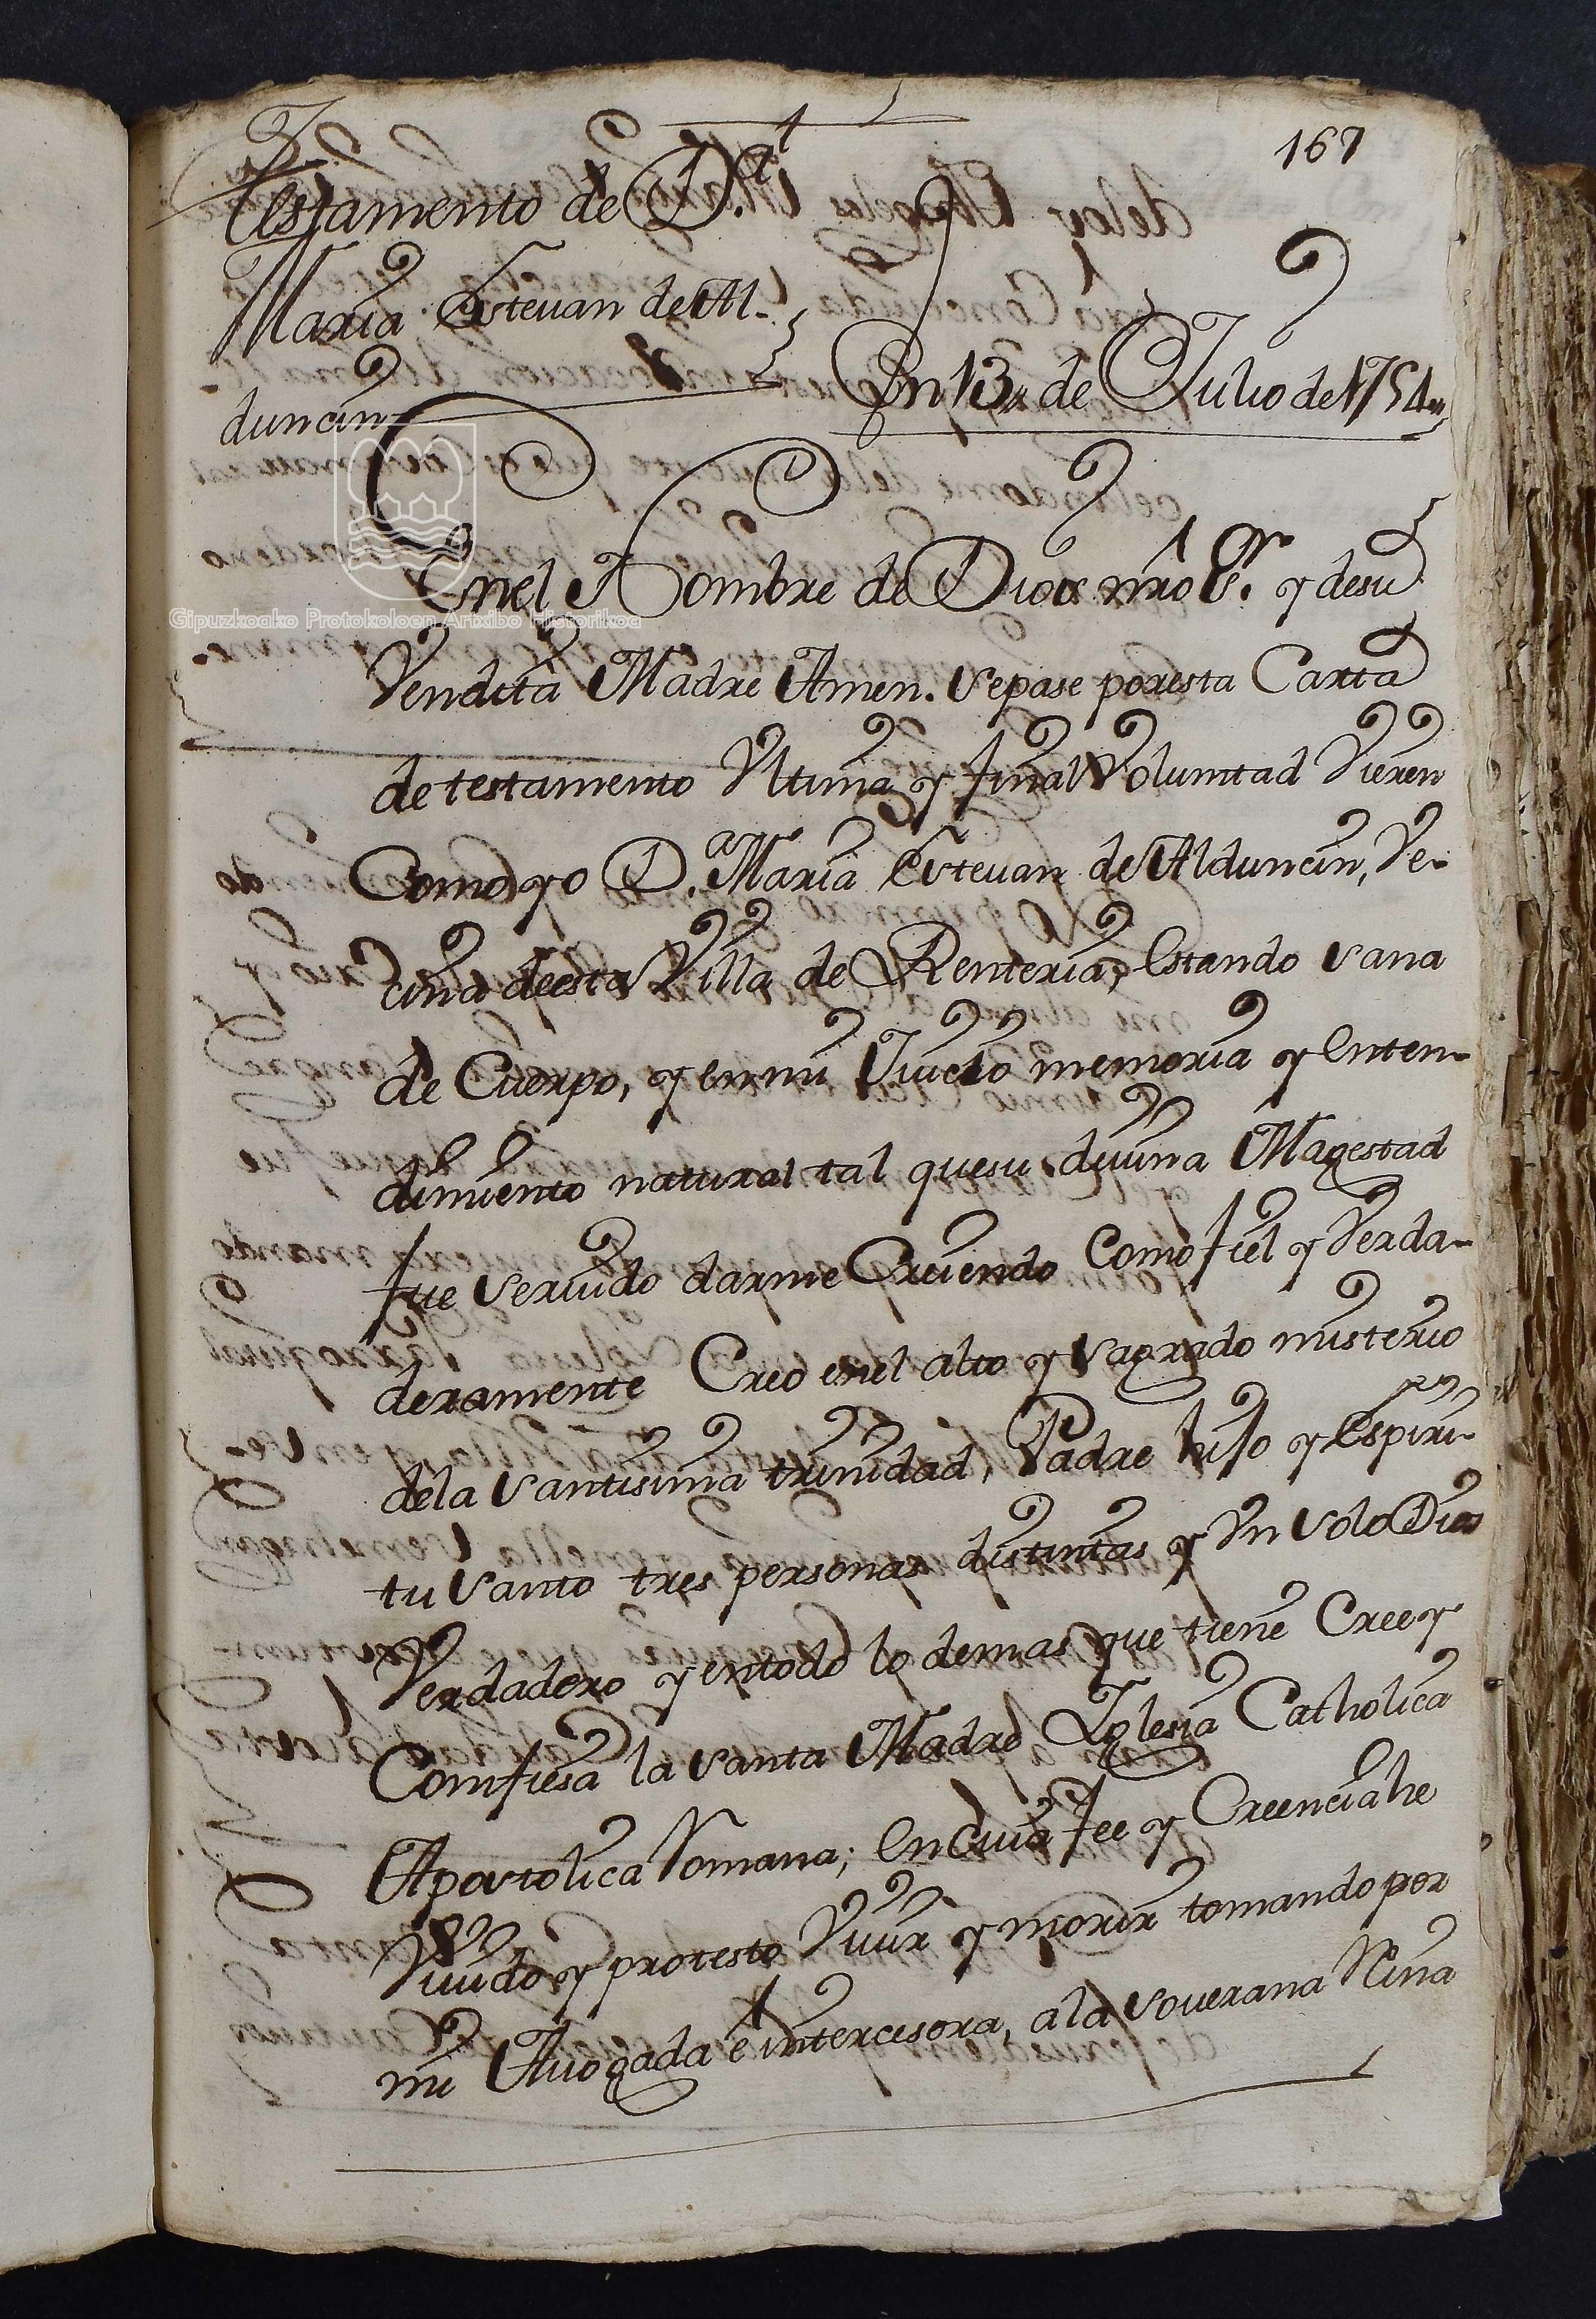 167
Testamento de D.ª
Maria Estevan de Al-
duncin
En 13, de Julio de 1754,,
En el Nombre de Dios nro Sr. y de su
Vendita Madre Amen. Sepase por esta Carta
de testamento Vltima y final Voluntad Vieren
Como yo D.ª Maria Estevan de Alduncin, Ve-
cina de esta Villa de Renteria, Estando Sana
de Cuerpo, y en mi Juicio memoria y Enten-
dimiento natural tal que su diuina Magestad
fue Seruido darme Creiendo Como fiel y Verda-
deramente Creo en el alto y Sagrado misterio
de la Santisima trinidad, Padre hijo y Espiri-
tu Santo tres personas distintas y Vn Solo Dios
Verdadero y en todo lo demas que tiene Cree y
Comfiesa la Santa Madre Iglesia Catholica
Apostolica Romana; En Cuia fee y Creencia he
Viuido y protesto Viuir y morir tomando por
mi Auogada é intercisora, a la Souerana Reina
Gipuzkoako Protokoloen Artxibo Historikoa